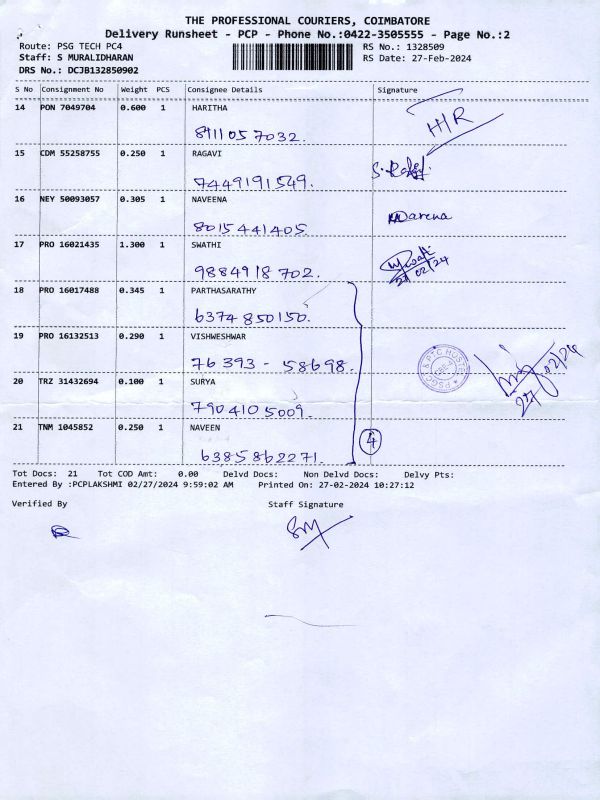 THE PROFESSIONAL COURIERS, COIMBATORE
Delivery Runsheet - PCP - Phone No.:0422-3505555 - Page No.:2
Route: PSG TECH PC4 RS No.: 1328509
Staff: S MURALIDHARAN RS Date: 27-Feb-2024
DRS No.: DCJB132850902
S No Consignment No Weight PCS Consignee Details Signature
14 PON 7049704 0.600 1 HARITHA
8911057032. H/R
15 CDM 55258755 0.250 1 RAGAVI
7449191549.
16 NEY 50093057 0.305 1 NAVEENA
8015441405.
17 PRO 16021435 1.300 1 SWATHI
9884918702. 27/02/24
18 PRO 16017488 0.345 1 PARTHASARATHY
6374850150.
19 PRO 16132513 0.290 1 VISHWESHWAR
76393 - 58698. 27/02/24
20 TRZ 31432694 0.100 1 SURYA
7904105009.
21 TNM 1045852 0.250 1 NAVEEN
6385862271. 4
Tot Docs: 21 Tot COD Amt: 0.00 Delvd Docs: Non Delvd Docs: Delvy Pts:
Entered By :PCPLAKSHMI 02/27/2024 9:59:02 AM Printed On: 27-02-2024 10:27:12
Verified By Staff Signature